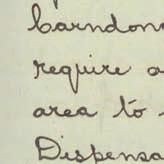 Carndon
require a
area to
Dispensa